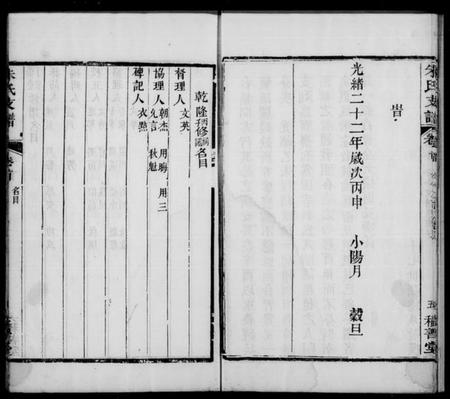 朱氏支譜
卷首
五
積善堂
旹
光緒二十二年歲次丙申　小陽月　穀旦
乾隆
修
名目
督理人　文英
協理人　朝杰　用晦　用三
允言　秋魁
碑記人　衣點
朱氏支譜
卷首
名目